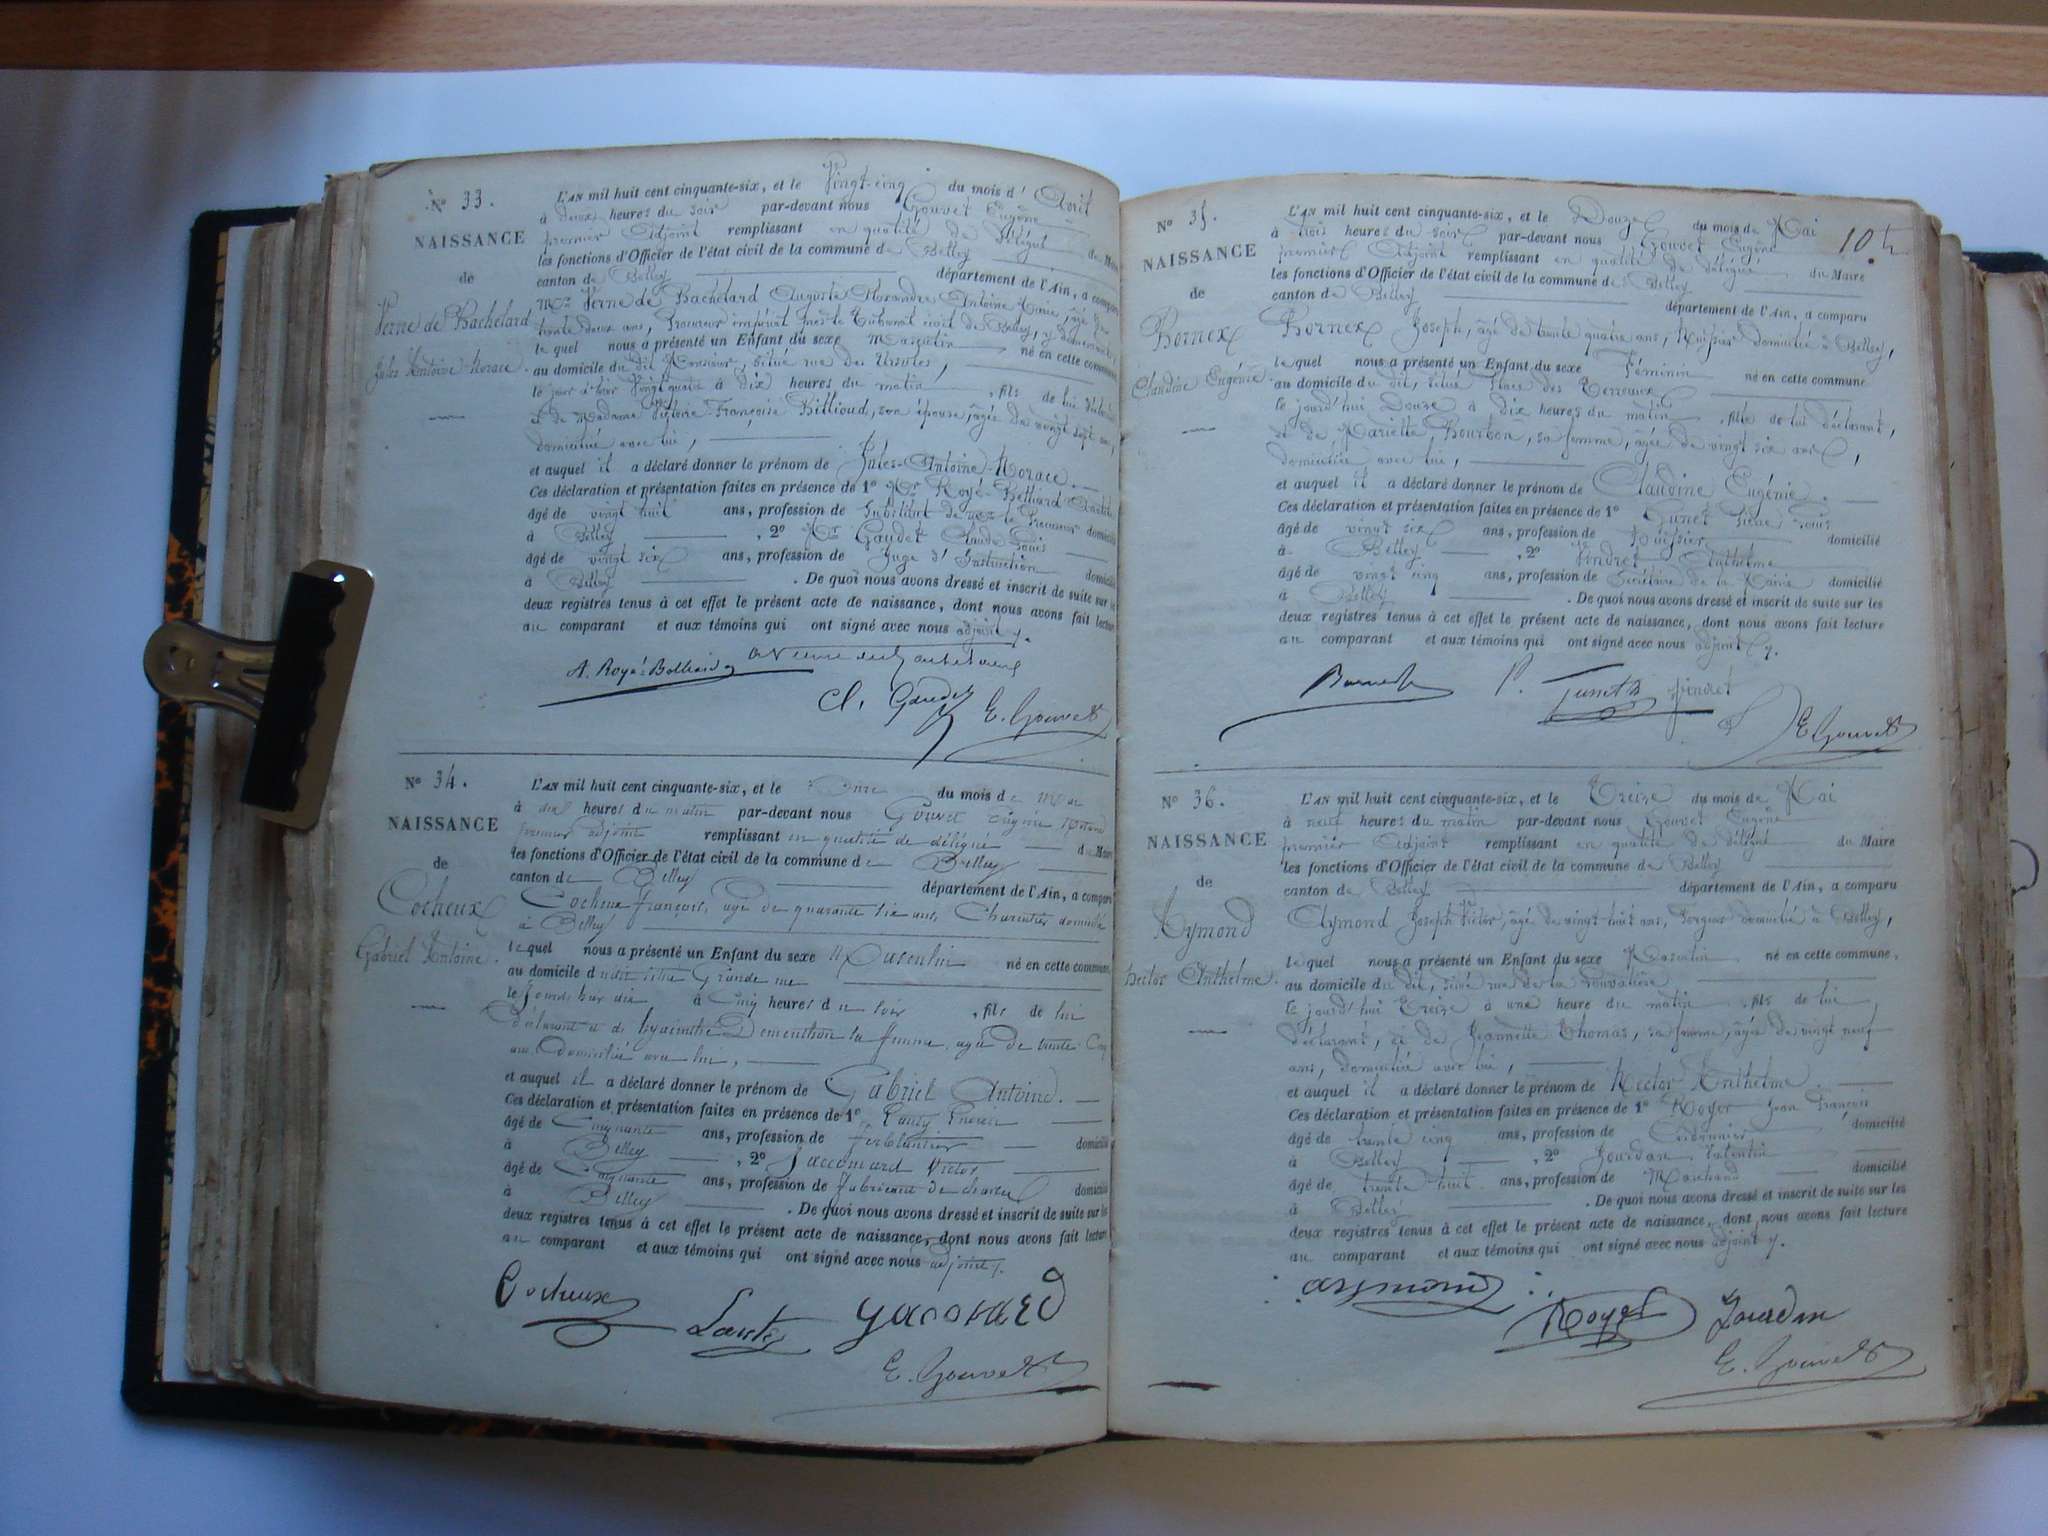 N° 33.
NAISSANCE
de
Verne de Bachelard
Jules Antoine Horace.
L'AN mil huit cent cinquante-six, et le Vingt-cinq du mois d'Avril
à deux heures du soir par-devant nous Gouvet Eugène
premier Adjoint remplissant en qualité de délégué du Maire
les fonctions d'Officier de l'état civil de la commune de Belley
canton de Belley département de l'Ain, a comparu
Verne de Bachelard Auguste Alexandre Antoine Marie, âgé de
trente deux ans, Procureur impérial près le Tribunal civil de Belley, y domicilié
le quel nous a présenté un Enfant du sexe Masculin né en cette commune
au domicile du dit Monsieur, situé rue des Ursules,
le jour d'hier Vingt quatre à dix heures du matin, fils de lui déclarant
et de Madame Victoire Françoise Billioud, son épouse, âgée de vingt sept ans,
domiciliée avec lui,
et auquel il a déclaré donner le prénom de Jules-Antoine-Horace.
Ces déclaration et présentation faites en présence de 1° Mr Royé-Belliard
âgé de vingt huit ans, profession de Substitut de Mr le Procureur domicilié
à Belley, 2° Mr Gaudet Claude Louis
âgé de vingt six ans, profession de Juge d'Instruction domicilié
à Belley. De quoi nous avons dressé et inscrit de suite sur les
deux registres tenus à cet effet le présent acte de naissance, dont nous avons fait lecture
au comparant et aux témoins qui ont signé avec nous adjoint.
A. Royé-Belliard
Cl. Gaudet E. Gouvet
N° 34.
NAISSANCE
de
Cocheux
Gabriel Antoine.
L'AN mil huit cent cinquante-six, et le Onze du mois de Mai
à dix heures du matin par-devant nous Gouvet Eugène
premier adjoint remplissant en qualité de délégué du Maire
les fonctions d'Officier de l'état civil de la commune de Belley
canton de Belley département de l'Ain, a comparu
Cocheux françois, âgé de quarante six ans, Charcutier domicilié
à Belley
le quel nous a présenté un Enfant du sexe Masculin né en cette commune,
au domicile situé Grande rue
le à Cinq heures du soir, fils de lui
déclarant et de hyacinthe Dementhon sa femme, agée de trente Cinq
ans domiciliée avec lui,
et auquel il a déclaré donner le prénom de Gabriel Antoine.
Ces déclaration et présentation faites en présence de 1°
âgé de Cinquante ans, profession de ferblantier domicilié
à Belley, 2° Jaccomard Victor
âgé de Cinquante ans, profession de fabricant de domicilié
à Belley. De quoi nous avons dressé et inscrit de suite sur les
deux registres tenus à cet effet le présent acte de naissance, dont nous avons fait lecture
au comparant et aux témoins qui ont signé avec nous adjoint.
Cocheux
E. Gouvet
N° 35.
NAISSANCE
de
Bornex
Claudine Eugénie.
10
L'AN mil huit cent cinquante-six, et le Douze du mois de Mai
à trois heures du soir par-devant nous Gouvet Eugène
premier Adjoint remplissant en qualité de délégué du Maire
les fonctions d'Officier de l'état civil de la commune de Belley
canton de Belley département de l'Ain, a comparu
Bornex Joseph, âgé de trente quatre ans, Huissier domicilié à Belley,
le quel nous a présenté un Enfant du sexe Féminin né en cette commune
au domicile du dit, situé Place des Terreaux
le jourd'hui Douze à dix heures du matin, fille de lui déclarant,
et de Mariette Bourbon, sa femme, âgée de vingt six ans,
domiciliée avec lui,
et auquel il a déclaré donner le prénom de Claudine Eugénie.
Ces déclaration et présentation faites en présence de 1° Louis
âgé de vingt six ans, profession de Huissier domicilié
à Belley, 2° Vindret Anthelme
âgé de vingt cinq ans, profession de Secrétaire de la Mairie domicilié
à Belley. De quoi nous avons dressé et inscrit de suite sur les
deux registres tenus à cet effet le présent acte de naissance, dont nous avons fait lecture
au comparant et aux témoins qui ont signé avec nous adjoint.
Vindret
E. Gouvet
N° 36.
NAISSANCE
de
Aymond
Hector Anthelme.
L'AN mil huit cent cinquante-six, et le Treize du mois de Mai
à neuf heures du matin par-devant nous Gouvet Eugène
premier Adjoint remplissant en qualité de délégué du Maire
les fonctions d'Officier de l'état civil de la commune de Belley
canton de Belley département de l'Ain, a comparu
Aymond Joseph Victor, âgé de vingt huit ans, domicilié à Belley,
le quel nous a présenté un Enfant du sexe Masculin né en cette commune,
au domicile du dit, situé rue de la
le jourd'hui Treize à une heure du matin, fils de lui
déclarant, et de Jeannette Thomas, sa femme, âgée de vingt neuf
ans, domiciliée avec lui,
et auquel il a déclaré donner le prénom de Hector Anthelme.
Ces déclaration et présentation faites en présence de 1° Royer Jean François
âgé de trente cinq ans, profession de Cordonnier domicilié
à Belley, 2° Jourdan Valentin
âgé de trente huit ans, profession de Marchand domicilié
à Belley. De quoi nous avons dressé et inscrit de suite sur les
deux registres tenus à cet effet le présent acte de naissance, dont nous avons fait lecture
au comparant et aux témoins qui ont signé avec nous adjoint.
aymond
Royer Jourdan
E. Gouvet